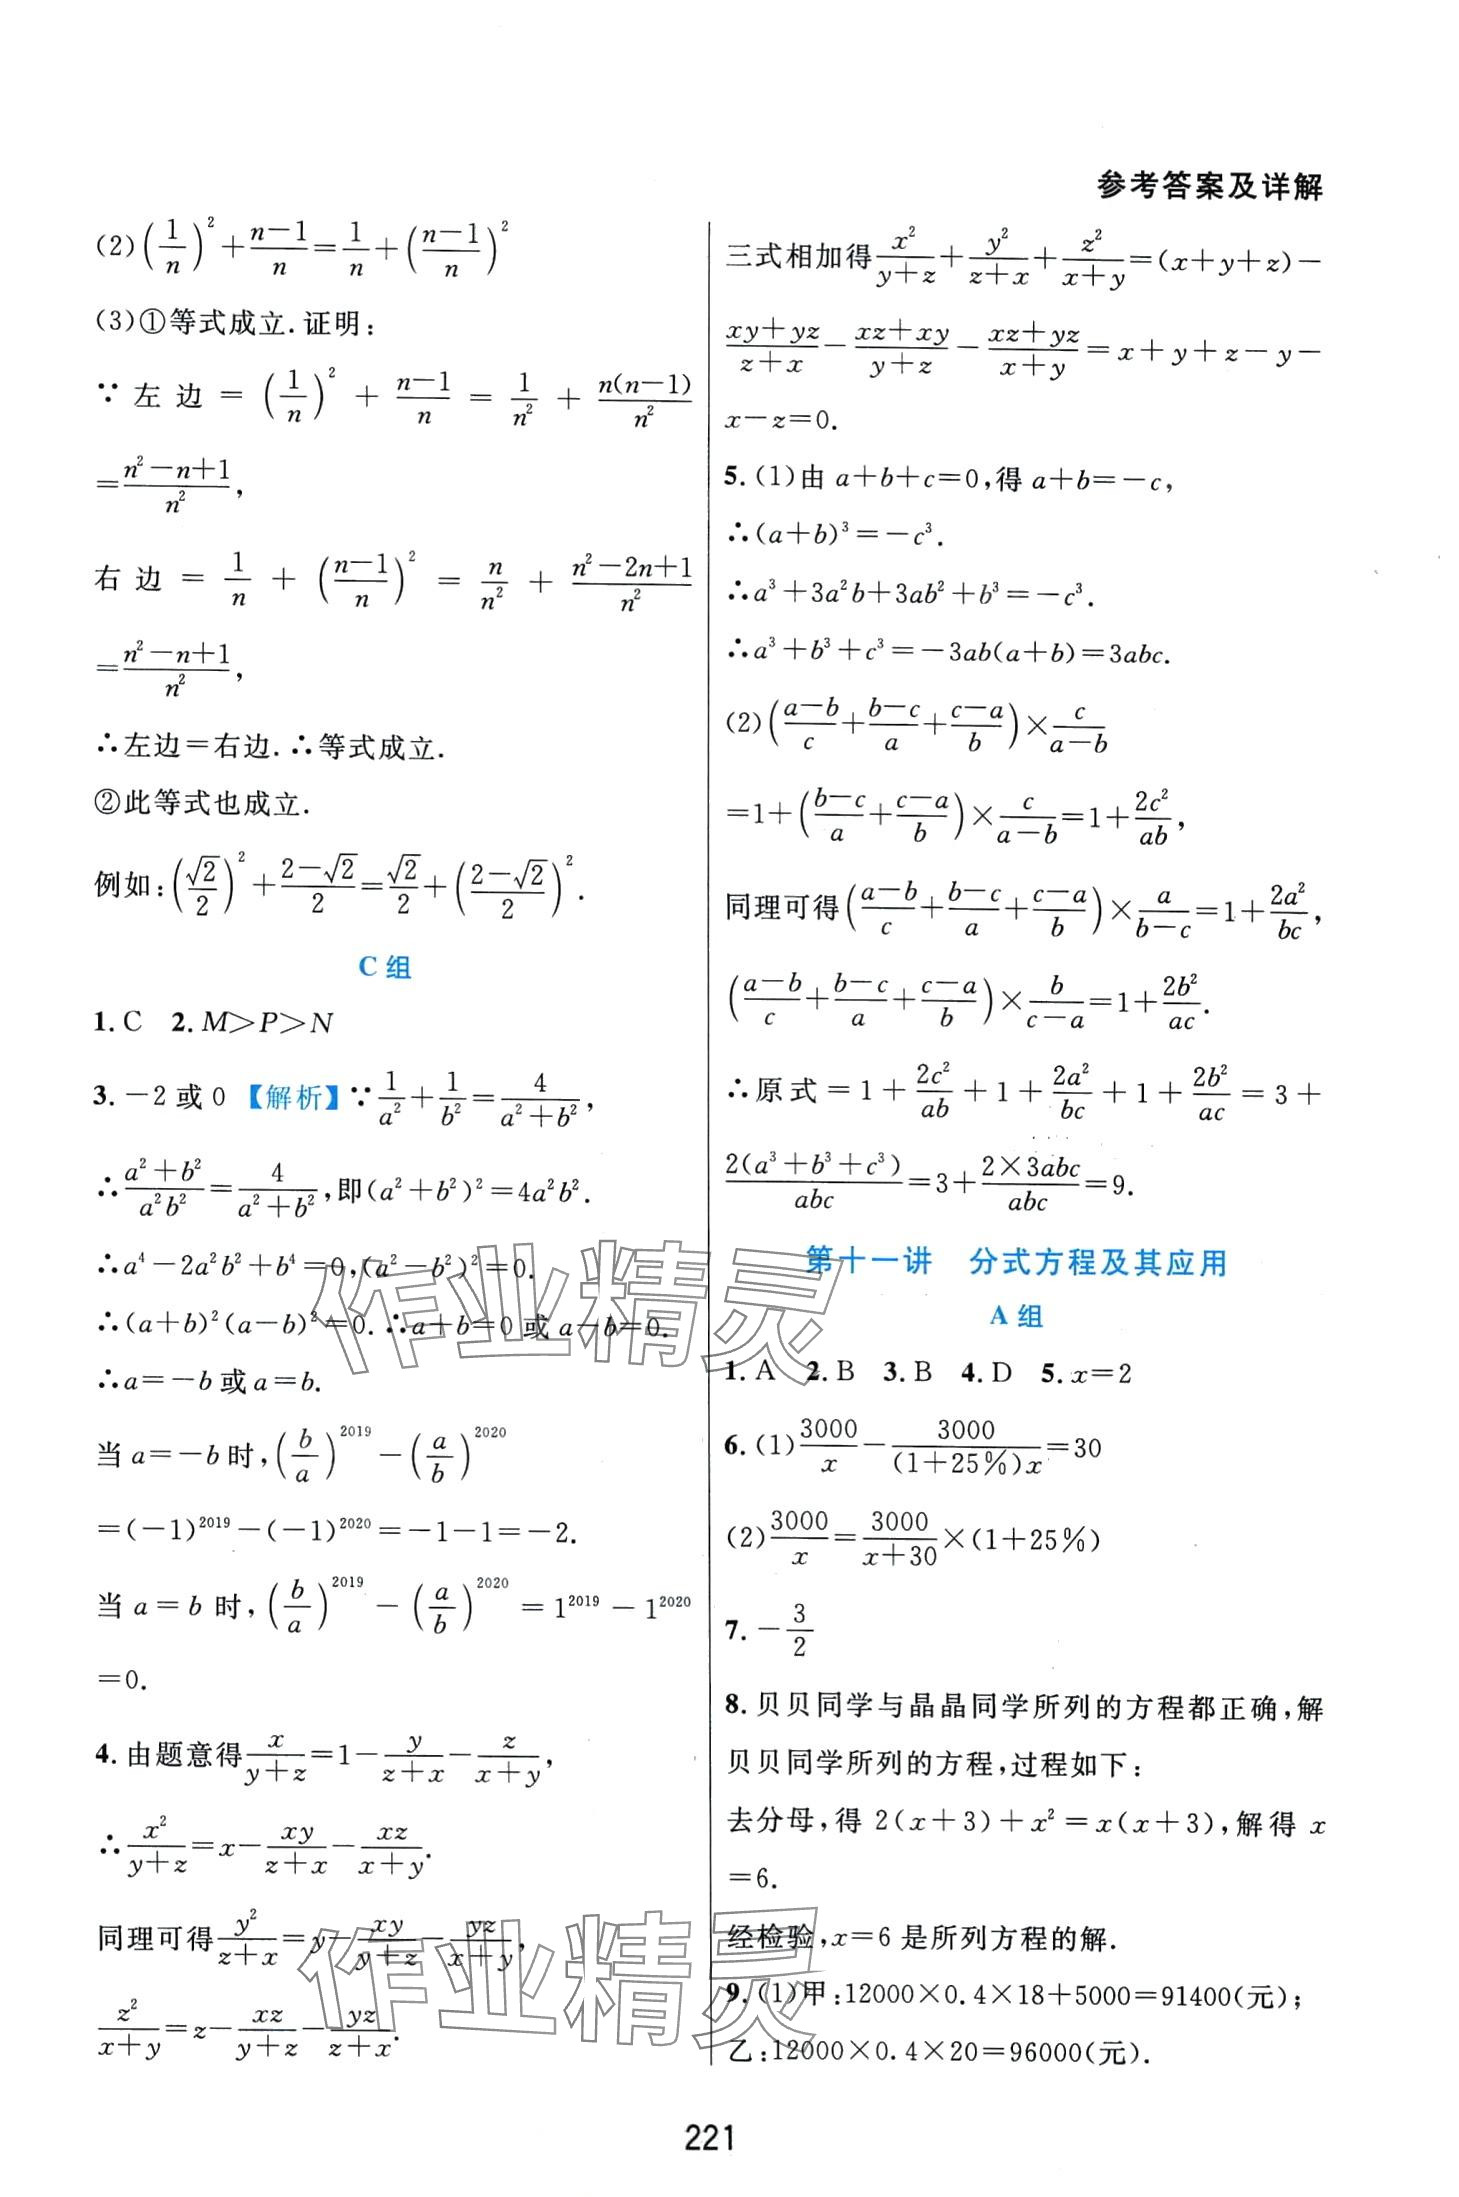 参考答案及详解
(2)(1/n)²+(n-1)/n=1/n+((n-1)/n)²
(3)①等式成立.证明:
∵左边=(1/n)²+(n-1)/n=1/n²+n(n-1)/n²
=(n²-n+1)/n²,
右边=1/n+((n-1)/n)²=n/n²+(n²-2n+1)/n²
=(n²-n+1)/n²,
∴左边=右边.∴等式成立.
②此等式也成立.
例如:(√2/2)²+(2-√2)/2=√2/2+((2-√2)/2)².
C组
1. C 2. M>P>N
3. -2或0 【解析】∵1/a²+1/b²=4/(a²+b²),
∴(a²+b²)/(a²b²)=4/(a²+b²),即(a²+b²)²=4a²b².
∴a⁴-2a²b²+b⁴=0,(a²-b²)²=0.
∴(a+b)²(a-b)²=0.∴a+b=0或a-b=0.
∴a=-b或a=b.
当a=-b时,(b/a)²⁰¹⁹-(a/b)²⁰²⁰
=(-1)²⁰¹⁹-(-1)²⁰²⁰=-1-1=-2.
当a=b时,(b/a)²⁰¹⁹-(a/b)²⁰²⁰=1²⁰¹⁹-1²⁰²⁰
=0.
4. 由题意得x/(y+z)=1-y/(z+x)-z/(x+y),
∴x²/(y+z)=x-xy/(z+x)-xz/(x+y).
同理可得y²/(z+x)=y-xy/(y+z)-yz/(x+y),
z²/(x+y)=z-xz/(y+z)-yz/(z+x).
三式相加得x²/(y+z)+y²/(z+x)+z²/(x+y)=(x+y+z)-
(xy+yz)/(z+x)-(xz+xy)/(y+z)-(xz+yz)/(x+y)=x+y+z-y-
x-z=0.
5. (1)由a+b+c=0,得a+b=-c,
∴(a+b)³=-c³.
∴a³+3a²b+3ab²+b³=-c³.
∴a³+b³+c³=-3ab(a+b)=3abc.
(2)((a-b)/c+(b-c)/a+(c-a)/b)×c/(a-b)
=1+((b-c)/a+(c-a)/b)×c/(a-b)=1+2c²/ab,
同理可得((a-b)/c+(b-c)/a+(c-a)/b)×a/(b-c)=1+2a²/bc,
((a-b)/c+(b-c)/a+(c-a)/b)×b/(c-a)=1+2b²/ac.
∴原式=1+2c²/ab+1+2a²/bc+1+2b²/ac=3+
2(a³+b³+c³)/abc=3+(2×3abc)/abc=9.
第十一讲 分式方程及其应用
A组
1. A 2. B 3. B 4. D 5. x=2
6. (1)3000/x-3000/((1+25%)x)=30
(2)3000/x=3000/(x+30)×(1+25%)
7. -3/2
8. 贝贝同学与晶晶同学所列的方程都正确,解
贝贝同学所列的方程,过程如下:
去分母,得2(x+3)+x²=x(x+3),解得x
=6.
经检验,x=6是所列方程的解.
9. (1)甲:12000×0.4×18+5000=91400(元);
乙:12000×0.4×20=96000(元).
作业精灵
作业精灵
221